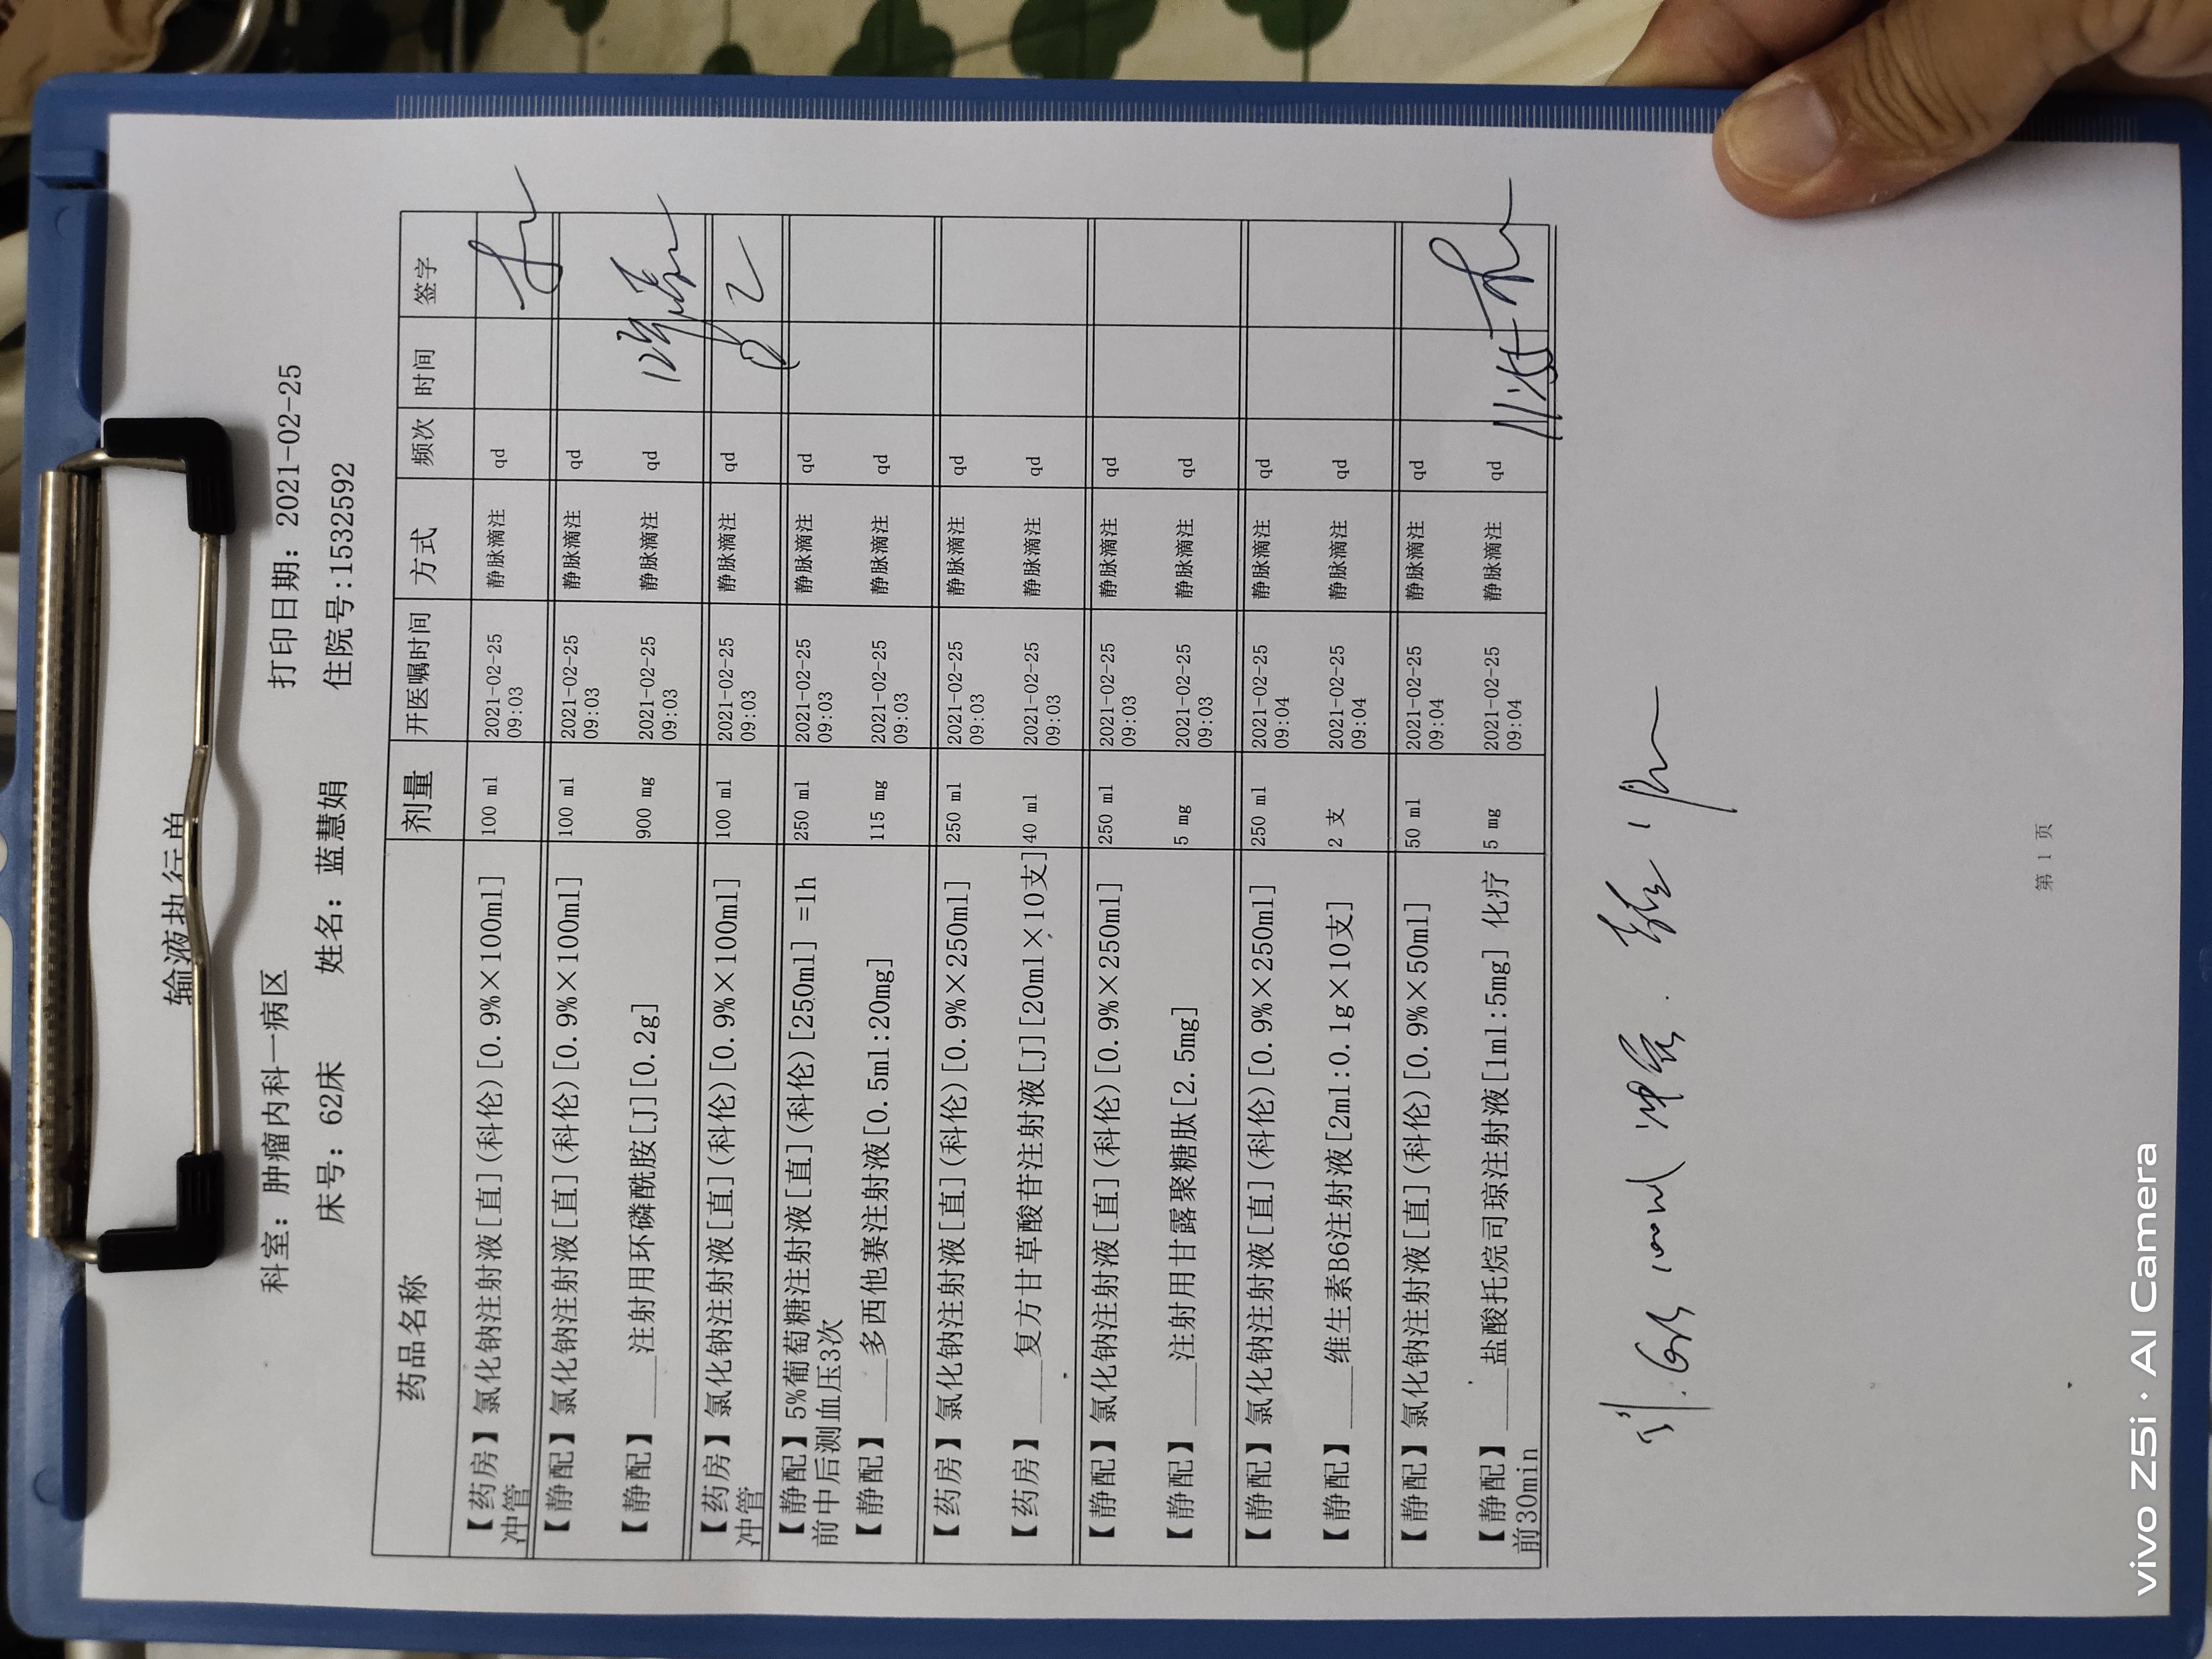 输液执行单
科室：肿瘤内科一病区 打印日期：2021-02-25
床号：62床 姓名：蓝慧娟 住院号:1532592
药品名称 剂量 开医嘱时间 方式 频次 时间 签字
【药房】氯化钠注射液[直](科伦)[0.9%×100ml] 100 ml 2021-02-25 静脉滴注 qd
冲管 09:03
【静配】氯化钠注射液[直](科伦)[0.9%×100ml] 100 ml 2021-02-25 静脉滴注 qd
09:03
【静配】____注射用环磷酰胺[J][0.2g] 900 mg 2021-02-25 静脉滴注 qd
09:03
【药房】氯化钠注射液[直](科伦)[0.9%×100ml] 100 ml 2021-02-25 静脉滴注 qd
冲管 09:03
【静配】5%葡萄糖注射液[直](科伦)[250ml] =1h 250 ml 2021-02-25 静脉滴注 qd
前中后测血压3次 09:03
【静配】____多西他赛注射液[0.5ml:20mg] 115 mg 2021-02-25 静脉滴注 qd
09:03
【药房】氯化钠注射液[直](科伦)[0.9%×250ml] 250 ml 2021-02-25 静脉滴注 qd
09:03
【药房】____复方甘草酸苷注射液[J][20ml×10支] 40 ml 2021-02-25 静脉滴注 qd
09:03
【静配】氯化钠注射液[直](科伦)[0.9%×250ml] 250 ml 2021-02-25 静脉滴注 qd
09:03
【静配】____注射用甘露聚糖肽[2.5mg] 5 mg 2021-02-25 静脉滴注 qd
09:03
【静配】氯化钠注射液[直](科伦)[0.9%×250ml] 250 ml 2021-02-25 静脉滴注 qd
09:04
【静配】____维生素B6注射液[2ml:0.1g×10支] 2 支 2021-02-25 静脉滴注 qd
09:04
【静配】氯化钠注射液[直](科伦)[0.9%×50ml] 50 ml 2021-02-25 静脉滴注 qd
09:04
【静配】____盐酸托烷司琼注射液[1ml:5mg] 化疗 5 mg 2021-02-25 静脉滴注 qd
前30min 09:04
100ml
第 1 页
vivo Z5i · AI Camera